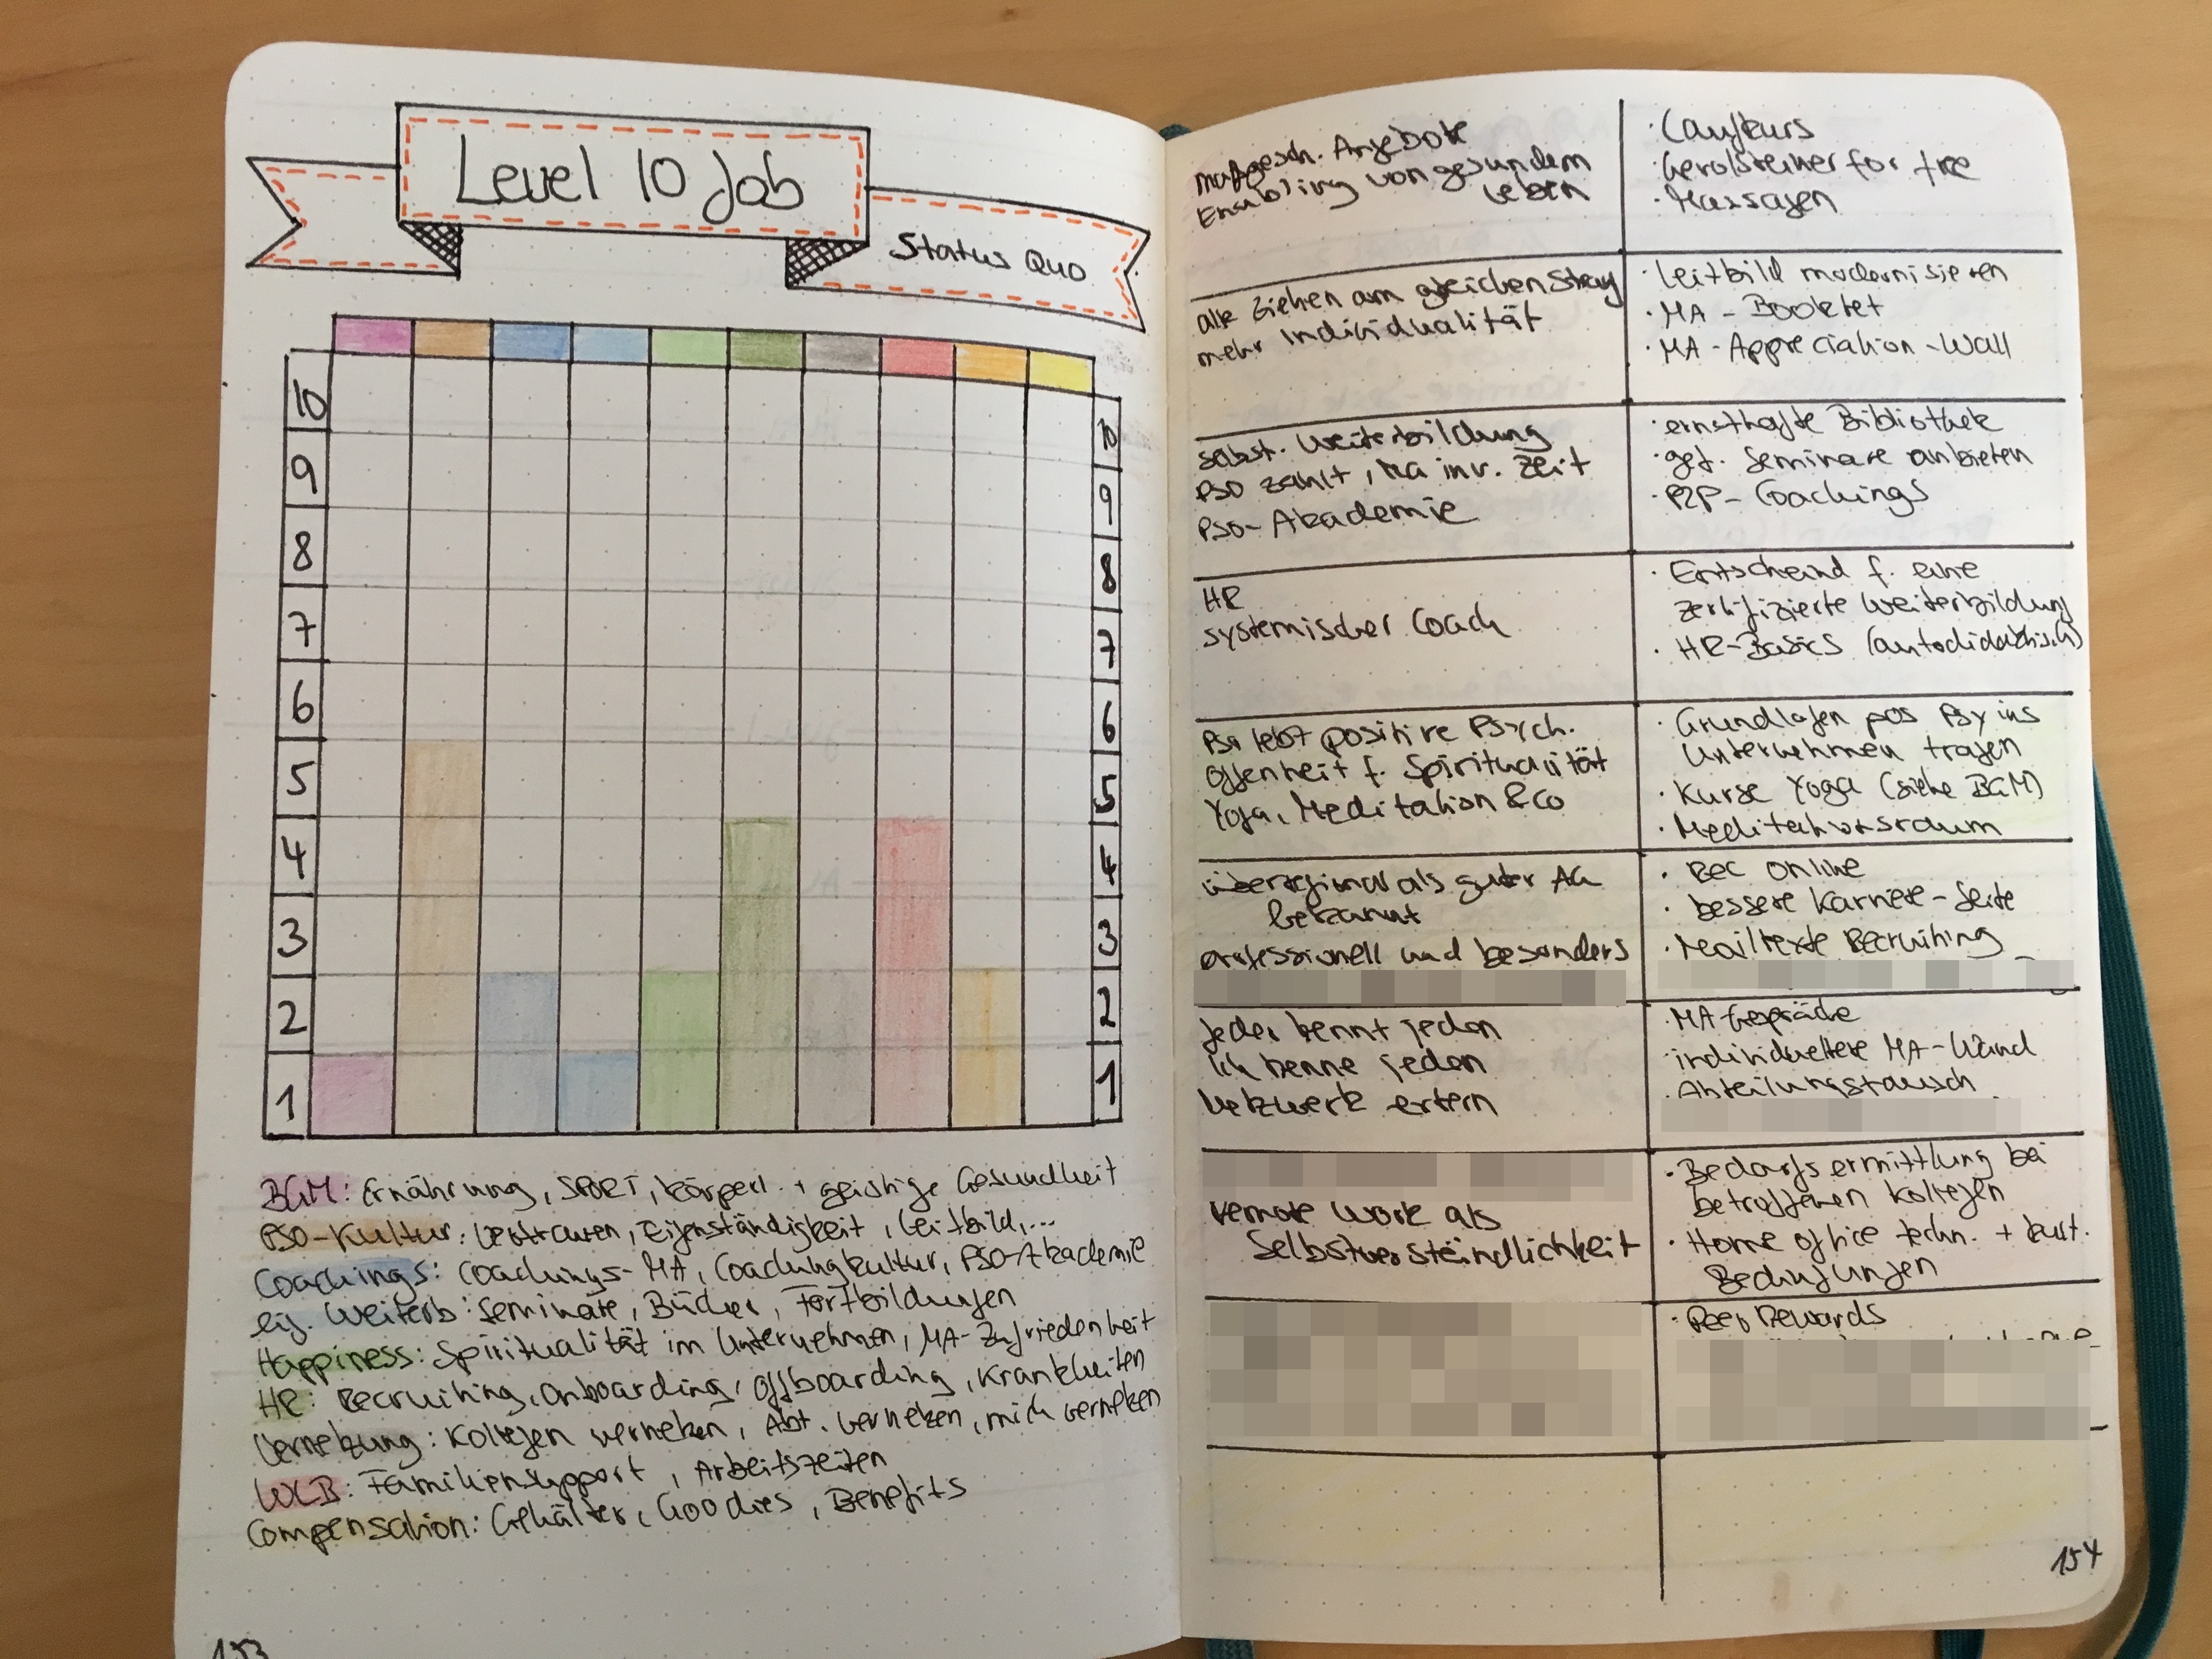 Level 10 Job
Status Quo
10
9
8
7
6
5
4
3
2
1
10
9
8
7
6
5
4
3
2
1
BGM: Ernährung, SPORT, körperl. + geistige Gesundheit
PSO-Kultur: Vertrauen, Eigenständigkeit, Leitbild,...
Coachings: Coachings-MA, Coachingkultur, PSO-Akademie
eig. Weiterb: Seminare, Bücher, Fortbildungen
Happiness: Spiritualität im Unternehmen, MA-Zufriedenheit
HR: Recruiting, Onboarding, Offboarding, Krankheiten
Vernetzung: Kollegen vernetzen, Abt. vernetzen, mich vernetzen
WLB: Familiensupport, Arbeitszeiten
Compensation: Gehälter, Goodies, Benefits
153
maßgesch. Angebote
Enabling von gesundem
Leben
· Laufkurs
· Gerolsteiner for free
· Massagen
alle ziehen am gleichen Strang
mehr Individualität
· Leitbild modernisieren
· MA-Booklet
· MA-Appreciation-Wall
selbst. Weiterbildung
PSO zahlt, MA inv. Zeit
PSO-Akademie
· ernsthafte Bibliothek
· gef. Seminare anbieten
· P2P-Coachings
HR
systemischer Coach
· Entscheid f. eine
zertifizierte Weiterbildung
· HR-Basics (autodidaktisch)
PSO lebt positive Psych.
Offenheit f. Spiritualität
Yoga, Meditation & Co
· Grundlagen pos Psy ins
Unternehmen tragen
· Kurse Yoga (siehe BGM)
· Meditationsraum
überregional als guter AG
bekannt
professionell und besonders
· Rec Online
· bessere Karriere-Seite
· Mailtexte Recruiting
jeder kennt jeden
ich kenne jeden
Netzwerk extern
· MA-Gespräche
· individuellere MA-Wand
· Abteilungstausch
remote work als
Selbstverständlichkeit
· Bedarfsermittlung bei
betroffenen Kollegen
· Home office techn. + kult.
Bedingungen
· Peer Rewards
154